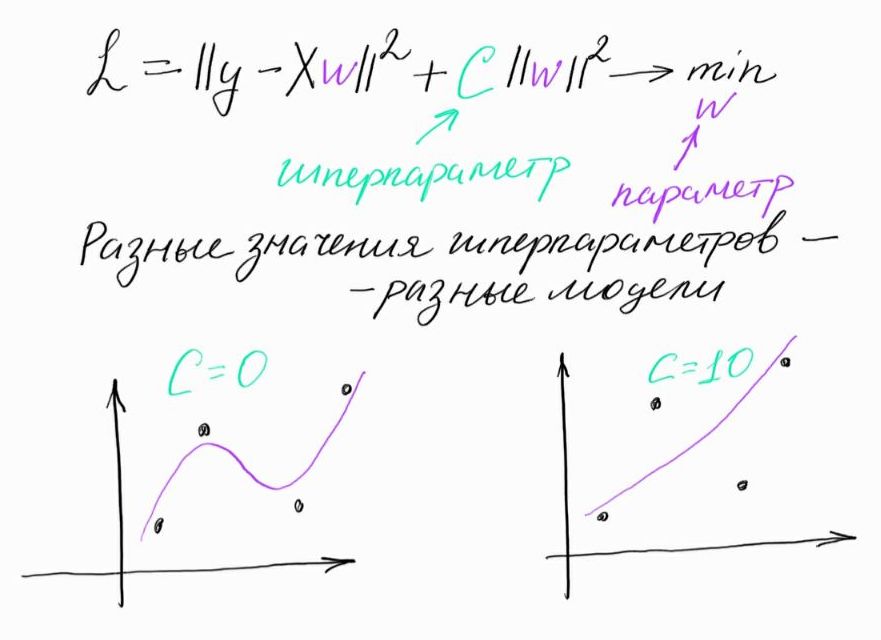 L = ||y - Xw||² + C ||w||² → min
w
гиперпараметр
параметр
Разные значения гиперпараметров –
– разные модели
C = 0
C = 10